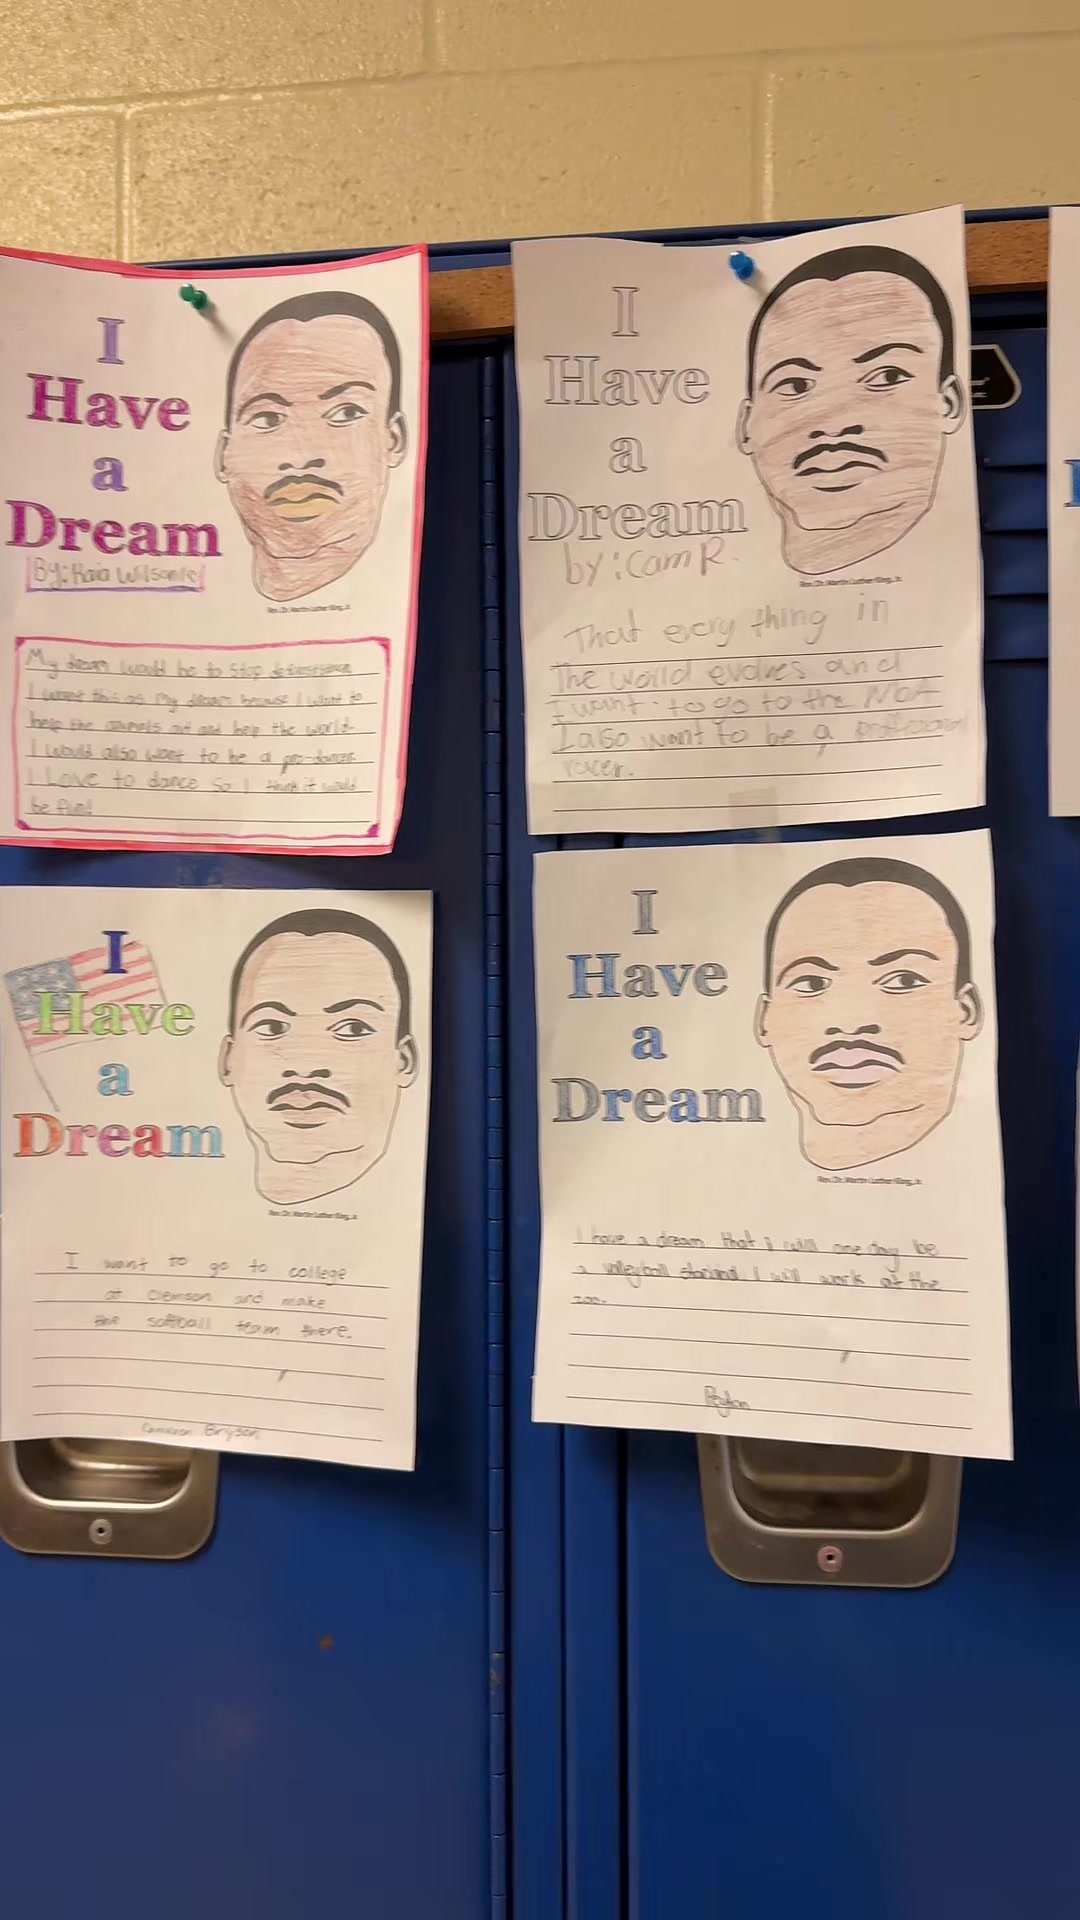 I
Have
a
Dream
By: Kaia Wilson
Rev. Dr. Martin Luther King, Jr.
My dream would be to stop deforestation
I want this as my dream because I want to
help the animels out and help the world.
I would also want to be a pro-dancer
I Love to dance so I think it would
be fun!
I
Have
a
Dream
by: Cam R.
Rev. Dr. Martin Luther King, Jr.
That every thing in
The world evolves and
I want to go to the NBA
I also want to be a proffesional
racer.
I
Have
a
Dream
Rev. Dr. Martin Luther King, Jr.
I want to go to college
at clemson and make
the softball team there.
Cameron Bryson
I
Have
a
Dream
Rev. Dr. Martin Luther King, Jr.
I have a dream that i will one day be
a volleyball I will work at the
zoo.
Peyton